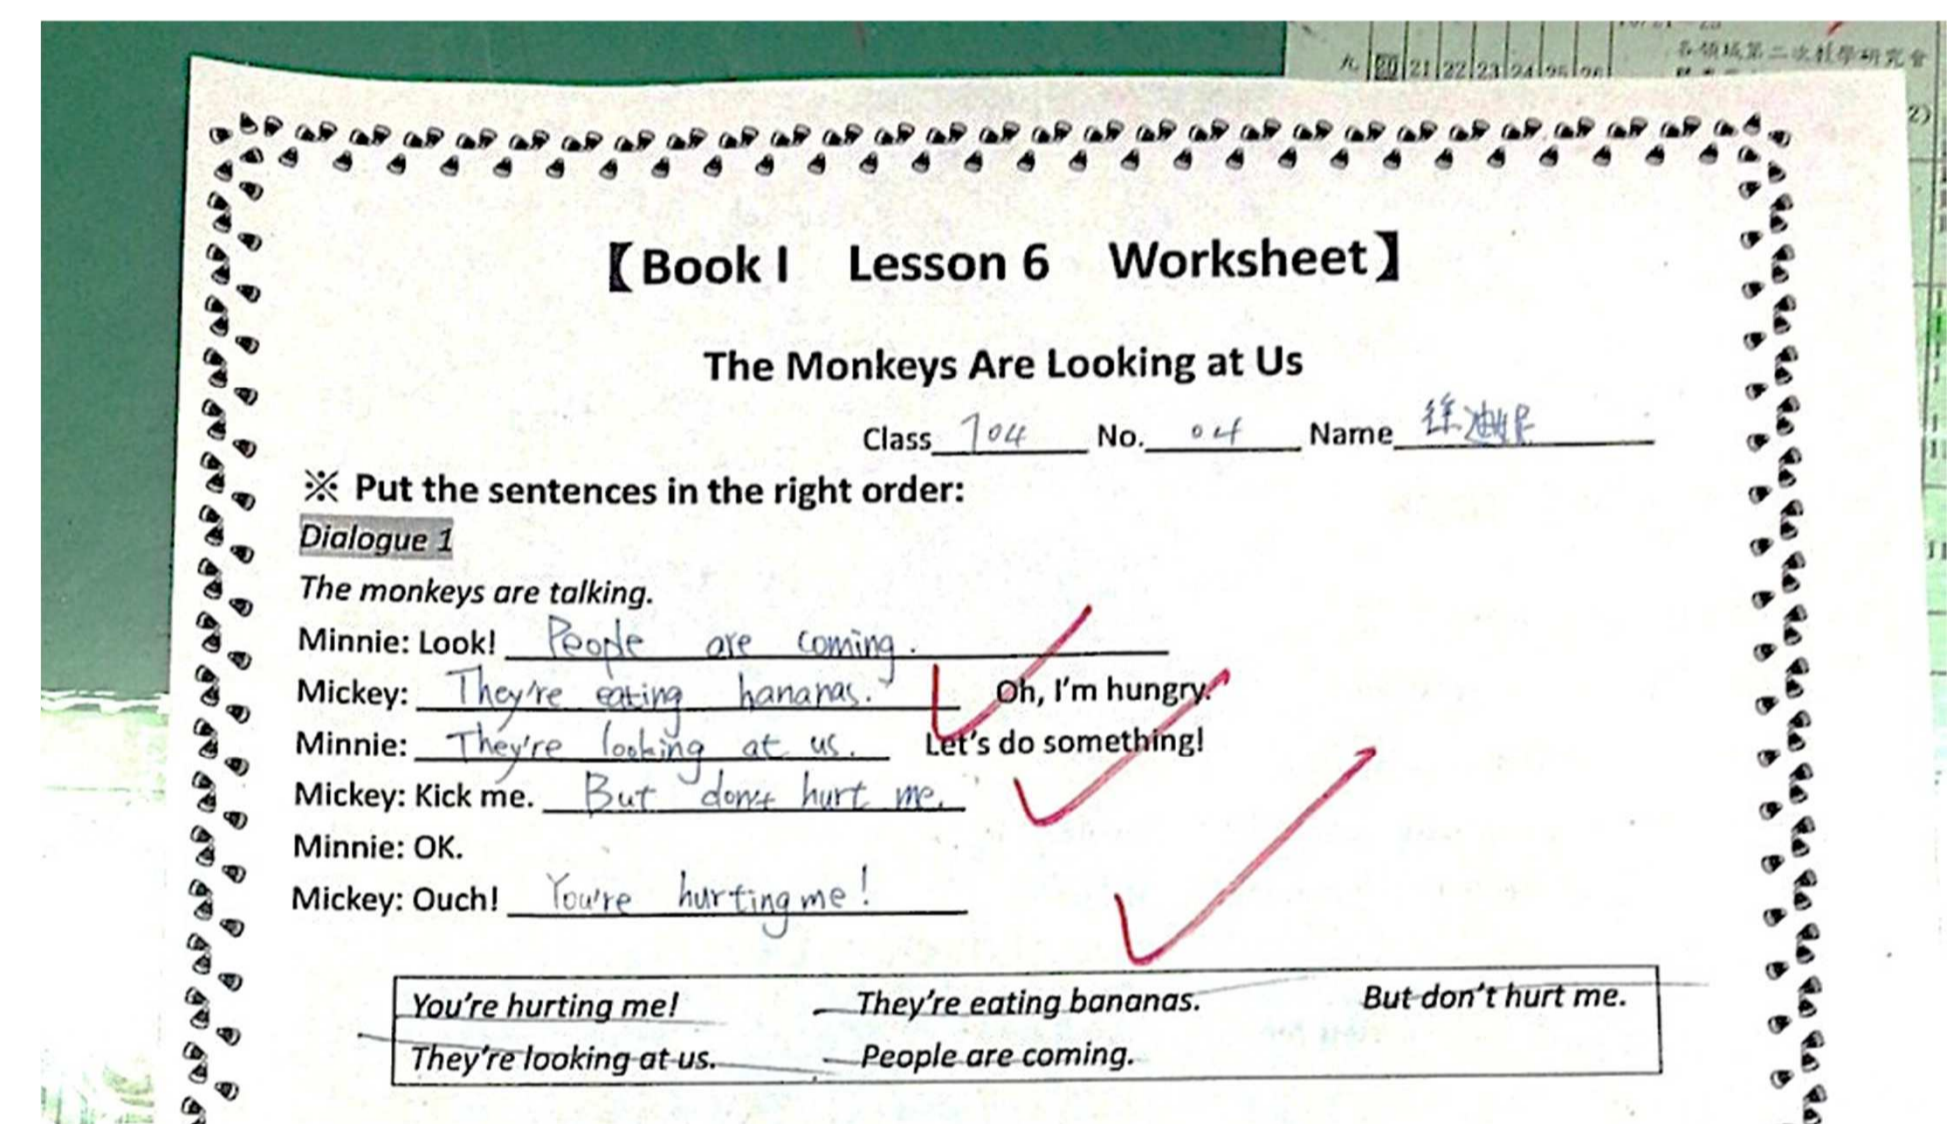 九 20 21 22 23 24 25 26
各領域第二次教學研究會
2)
【Book I Lesson 6 Worksheet】
The Monkeys Are Looking at Us
Class 704 No. 04 Name 徐
※ Put the sentences in the right order:
Dialogue 1
The monkeys are talking.
Minnie: Look! People are coming.
Mickey: They're eating bananas. Oh, I'm hungry.
Minnie: They're looking at us. Let's do something!
Mickey: Kick me. But don't hurt me.
Minnie: OK.
Mickey: Ouch! You're hurting me!
You're hurting me! They're eating bananas. But don't hurt me.
They're looking at us. People are coming.